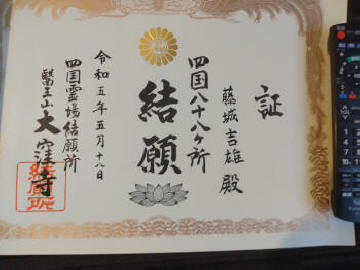 証
藤城吉雄殿
四国八十八ヶ所
結願
令和五年五月十八日
四国霊場結願所
醫王山大窪寺
結願所